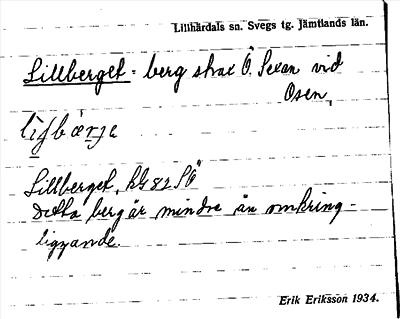 Lillhärdals sn. Svegs tg. Jämtlands län.
Lillberget - berg strax Ö. Sexan vid
Osen,
Lillberget, kbl 82 SÖ
Detta berg är mindre än omkring-
liggande.
Erik Eriksson 1934.